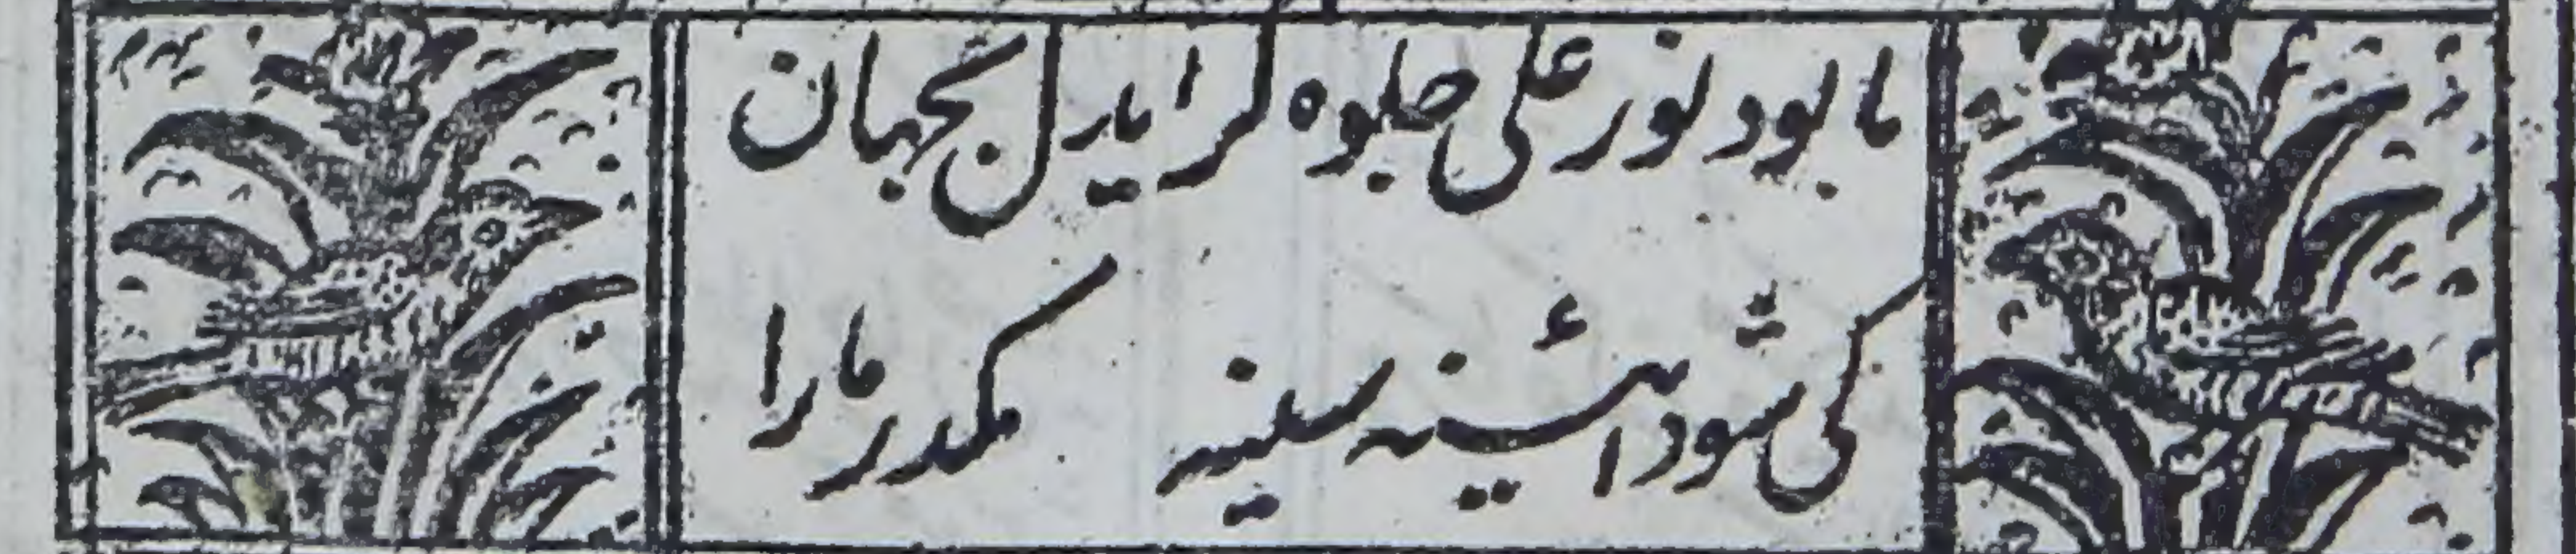 تا بود نور علی جلوه گر اندر دل بجهان
کی شود آئینه سینه مکدر ما را